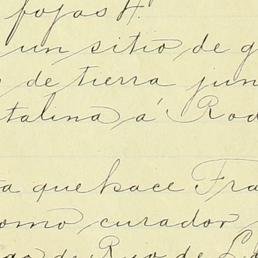 fojas 4.
un sitio de g
de tierra jun
talina á Rod
a que hace Fra
omo curador